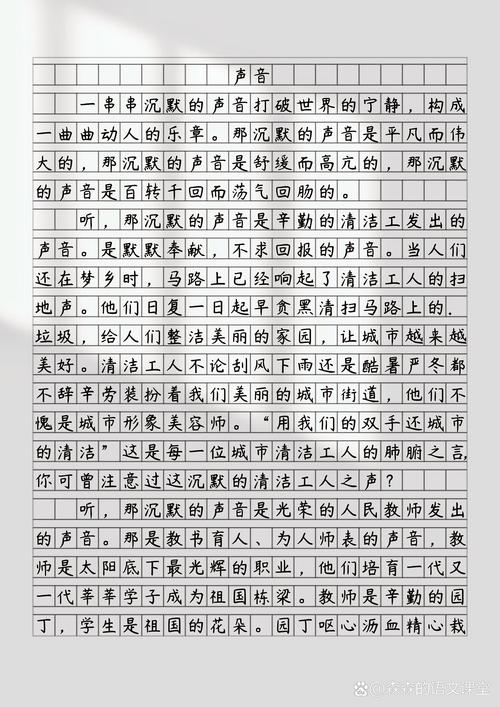 声音
一串串沉默的声音打破世界的宁静，构成
一曲曲动人的乐章。那沉默的声音是平凡而伟
大的，那沉默的声音是舒缓而高亢的，那沉默
的声音是百转千回而荡气回肠的。
听，那沉默的声音是辛勤的清洁工发出的
声音。是默默奉献，不求回报的声音。当人们
还在梦乡时，马路上已经响起了清洁工人的扫
地声。他们日复一日起早贪黑清扫马路上的.
垃圾，给人们整洁美丽的家园，让城市越来越
美好。清洁工人不论刮风下雨还是酷暑严冬都
不辞辛劳装扮着我们美丽的城市街道，他们不
愧是城市形象美容师。“用我们的双手还城市
的清洁”这是每一位城市清洁工人的肺腑之言，
你可曾注意过这沉默的清洁工人之声？
听，那沉默的声音是光荣的人民教师发出
的声音。那是教书育人、为人师表的声音，教
师是太阳底下最光辉的职业，他们培育一代又
一代莘莘学子成为祖国栋梁。教师是辛勤的园
丁，学生是祖国的花朵。园丁呕心沥血精心栽
@森森的语文课堂